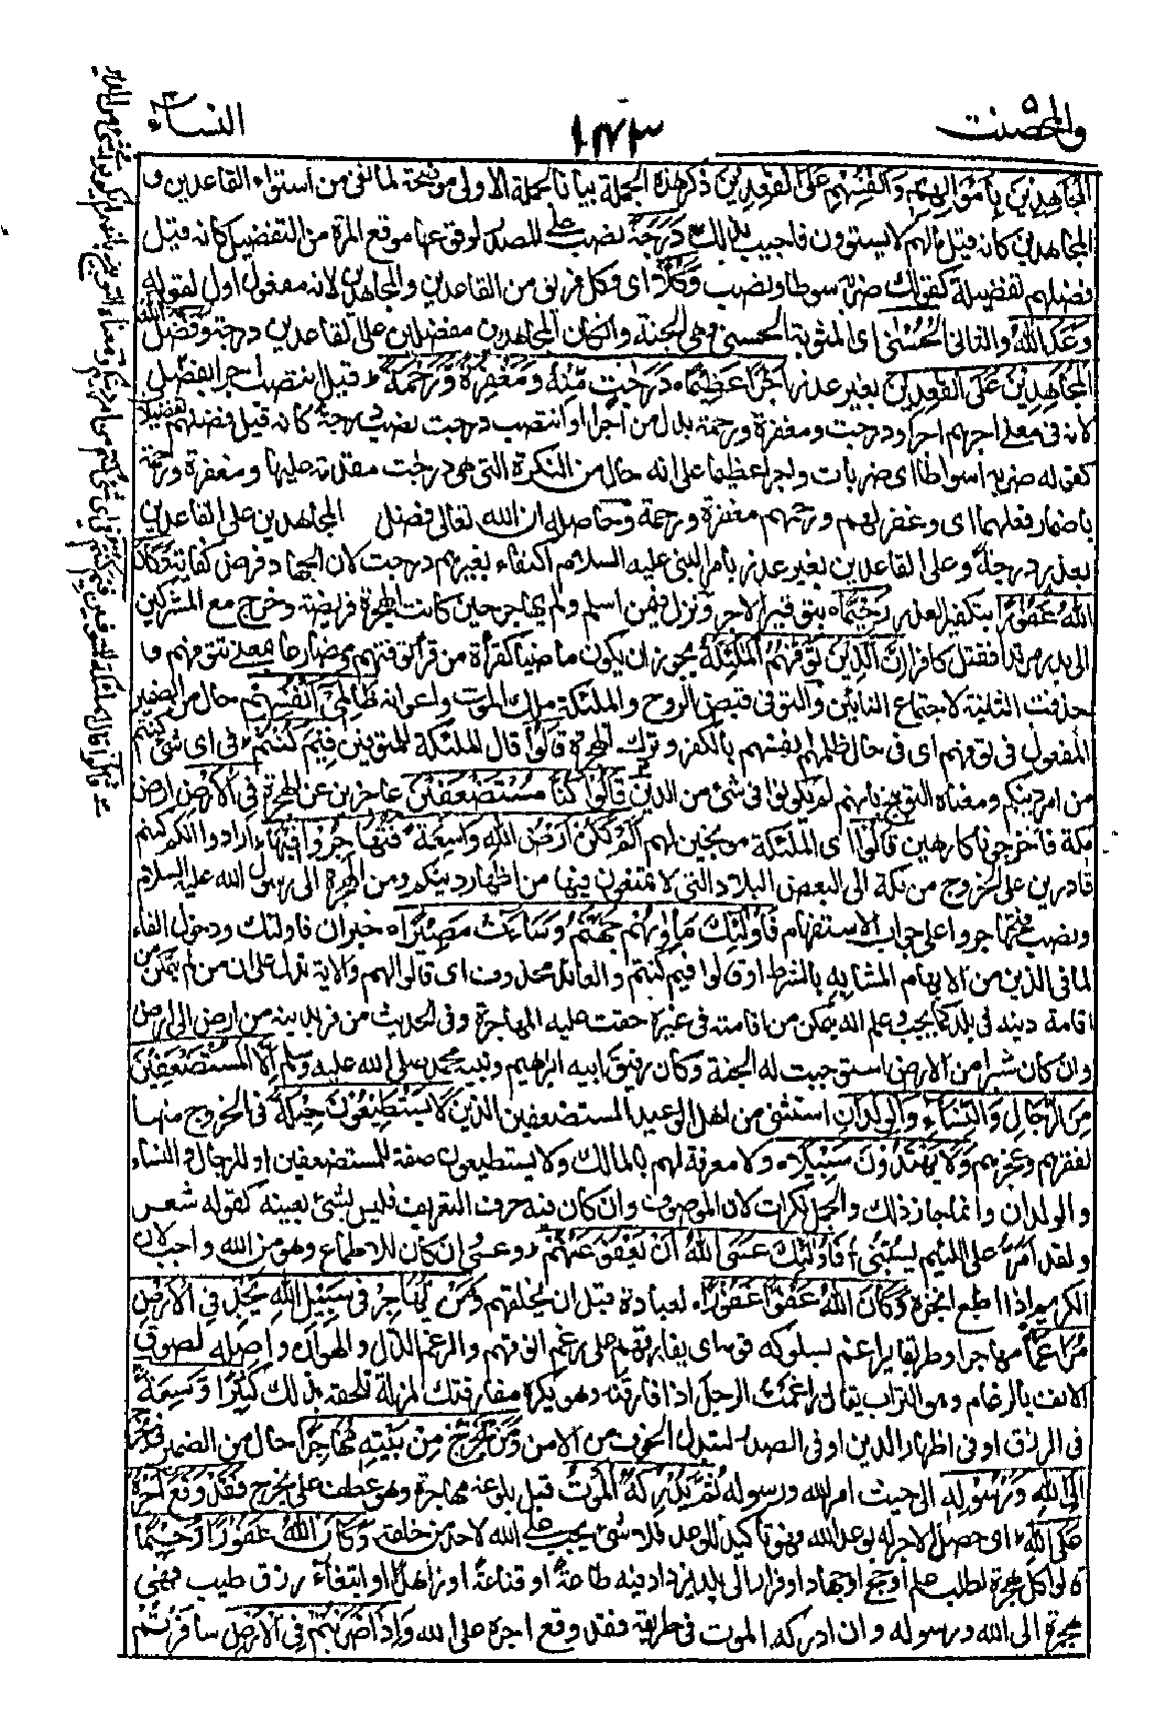 والمحصنت ٥
١٧٣
النساء ٤
المُجَاهِدِيْنَ بِأَمْوَالِهِمْ وَأَنْفُسِهِمْ عَلَى الْقَعِدِيْنَ ذكر هذه الجملة بيانا للجملة الاولى موضحة لما نفى من استواء القاعدين و
المجاهدين كانه قيل ما لهم لا يستوون فاجيب بذلك دَرَجَةً نصب على المصدر لوقوعها موقع المرة من التفضيل كانه قيل
فضلهم تفضيلة كقولك ضربه سوطا ونصب وَكُلًّا اى وكل فريق من القاعدين والمجاهدين لانه مفعول اول لقوله
وَعَدَ اللهُ والثانى الْحُسْنٰى اى المثوبة الحسنى وهى الجنة وان كان المجاهدون مفضلين على القاعدين درجة وَفَضَّلَ اللهُ
الْمُجَاهِدِيْنَ عَلَى الْقَعِدِيْنَ بغير عذر اَجْرًا عَظِيْمًا دَرَجٰتٍ مِّنْهُ وَمَغْفِرَةً وَّرَحْمَةً قيل انتصب اجرا بفضل
لانه فى معنى اجرهم اجرا ودرجت ومغفرة ورحمة بدل من اجرا او انتصب درجت نصب درجة كانه قيل فضلهم تفضيلات
كقوله ضربه اسواطا اى ضربات واجرا عظيما على انه حال من النكرة التى هى درجات مقدمة عليها ومغفرة ورحمة
باضمار فعلهما اى وغفر لهم ورحمهم مغفرة ورحمة وحاصله ان الله تعالى فضل المجاهدين على القاعدين
بعذر درجة وعلى القاعدين بغير عذر بامر النبى عليه السلام اكتفاء بغيرهم درجت لان الجهاد فرض كفاية وَكَانَ
اللهُ غَفُوْرًا بتكفير العذر رَّحِيْمًا بتوفير الاجر ونزل فيمن اسلم ولم يهاجر حين كانت الهجرة فريضة وخرج مع المشركين
الى بدر مرتدا فقتل كافرا اِنَّ الَّذِيْنَ تَوَفّٰهُمُ الْمَلٰٓئِكَةُ يجوز ان يكون ماضيا كقراءة من قرأ توفتهم ومضارعا بمعنى تتوفهم و
حذفت الثانية لاجتماع التائين والتوفى قبض الروح والملئكة ملك الموت واعوانه ظَالِمِيْٓ اَنْفُسِهِمْ حال من الضمير
المفعول فى توفهم اى فى حال ظلمهم انفسهم بالكفر وترك الهجرة قَالُوْا قال الملئكة للمتوفين فِيْمَ كُنْتُمْ فى اى شئ كنتم
من امر دينكم ومعناه التوبيخ بانهم لم يكونوا فى شئ من الدين قَالُوْا كُنَّا مُسْتَضْعَفِيْنَ عاجزين عن الهجرة فِي الْاَرْضِ ارض
مكة فاخرجونا كارهين قَالُوْٓا اى الملئكة موبخين لهم اَلَمْ تَكُنْ اَرْضُ اللهِ وَاسِعَةً فَتُهَاجِرُوْا فِيْهَا ارادوا انكم كنتم
قادرين على الخروج من مكة الى بعض البلاد التى لا تمنعون فيها من اظهار دينكم ومن الهجرة الى رسول الله عليه السلام
ونصب فتهاجروا على جواب الاستفهام فَاُولٰٓئِكَ مَاْوٰىهُمْ جَهَنَّمُ وَسَآءَتْ مَصِيْرًا خبر ان فاولئك ودخول الفاء
لما فى الذين من الابهام المشابه بالشرط او قالوا فيم كنتم والعائد محذوف اى قالوا لهم والاية تدل على ان من لم يتمكن من
اقامة دينه فى بلد كما يجب وعلم انه يتمكن من اقامته فى غيره حقت عليه المهاجرة وفى الحديث من فر بدينه من ارض الى ارض
وان كان شبرا من الارض استوجبت له الجنة وكان رفيق ابيه ابراهيم ونبيه محمد صلى الله عليه وسلم اِلَّا الْمُسْتَضْعَفِيْنَ
مِنَ الرِّجَالِ وَالنِّسَآءِ وَالْوِلْدَانِ استثنى من اهل الوعيد المستضعفين الذين لَا يَسْتَطِيْعُوْنَ حِيْلَةً فى الخروج منها
لفقرهم وعجزهم وَّلَا يَهْتَدُوْنَ سَبِيْلًا ولا معرفة لهم بالمسالك ولا يستطيعون صفة للمستضعفين او للرجال والنساء
والولدان وانما جاز ذلك والجمل نكرات لان الموصوف وان كان فيه حرف التعريف فليس بشئ بعينه كقوله شعر
ولقد امر على اللئيم يسبنى فَاُولٰٓئِكَ عَسَى اللهُ اَنْ يَّعْفُوَ عَنْهُمْ وعسى ان كان للاطماع وهو من الله واجب لان
الكريم اذا اطمع انجزه وَكَانَ اللهُ عَفُوًّا غَفُوْرًا لعباده قبل ان يخلقهم وَمَنْ يُّهَاجِرْ فِيْ سَبِيْلِ اللهِ يَجِدْ فِي الْاَرْضِ
مُرَاغَمًا مهاجرا وطريقا يراغم بسلوكه قومه اى يفارقهم على رغم انوفهم والرغم الذل والهوان واصله لصوق
الانف بالرغام وهو التراب يقال راغمت الرجل اذا فارقته وهو يكره مفارقتك لمذلة تلحقه بذلك كَثِيْرًا وَّسَعَةً
فى الرزق او فى اظهار الدين او فى الصدر لتبدل الخوف من الامن وَمَنْ يَّخْرُجْ مِنْ بَيْتِهٖ مُهَاجِرًا حال من الضمير فى يخرج
اِلَى اللهِ وَرَسُوْلِهٖ الى حيث امر الله ورسوله ثُمَّ يُدْرِكْهُ الْمَوْتُ قبل بلوغه مهاجره وهو عطف على يخرج فَقَدْ وَقَعَ اَجْرُهٗ
عَلَى اللهِ اى حصل الاجر له بوعد الله وهو تاكيد للوعد فلا شئ يجب على الله لاحد من خلقه وَكَانَ اللهُ غَفُوْرًا رَّحِيْمًا
قالوا كل هجرة لطلب علم او حج او جهاد او فرار الى بلد يزداد فيه طاعة او قناعة او زهدا او ابتغاء رزق طيب فهى
هجرة الى الله ورسوله وان ادركه الموت فى طريقه فقد وقع اجره على الله وَاِذَا ضَرَبْتُمْ فِي الْاَرْضِ سافرتم